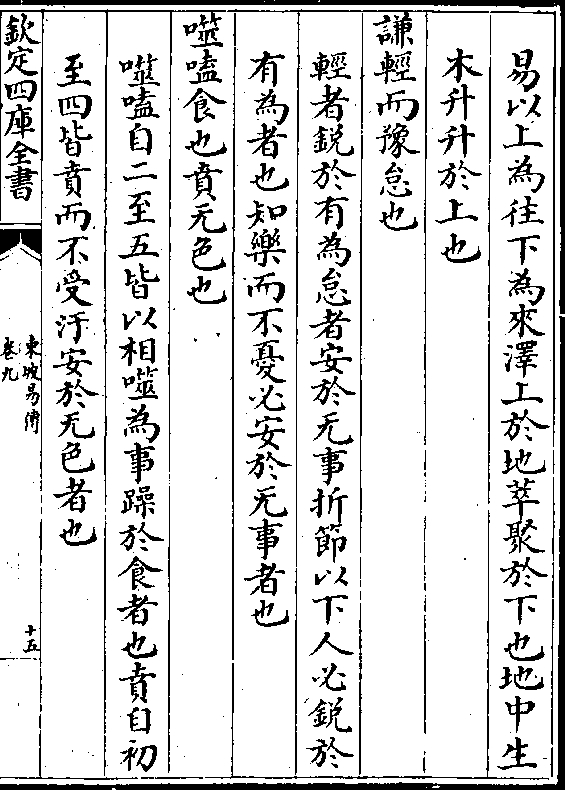 易以上為往下為來澤上於地萃聚於下也地中生
木升升於上也
謙輕而豫怠也
輕者鋭於有為怠者安於无事折節以下人必鋭於
有為者也知樂而不憂必安於无事者也
噬嗑食也賁无色也
噬嗑自二至五皆以相噬為事躁於食者也賁自初
至四皆賁而不受汙安於无色者也
欽定四庫全書
東坡易傳
卷九
十五